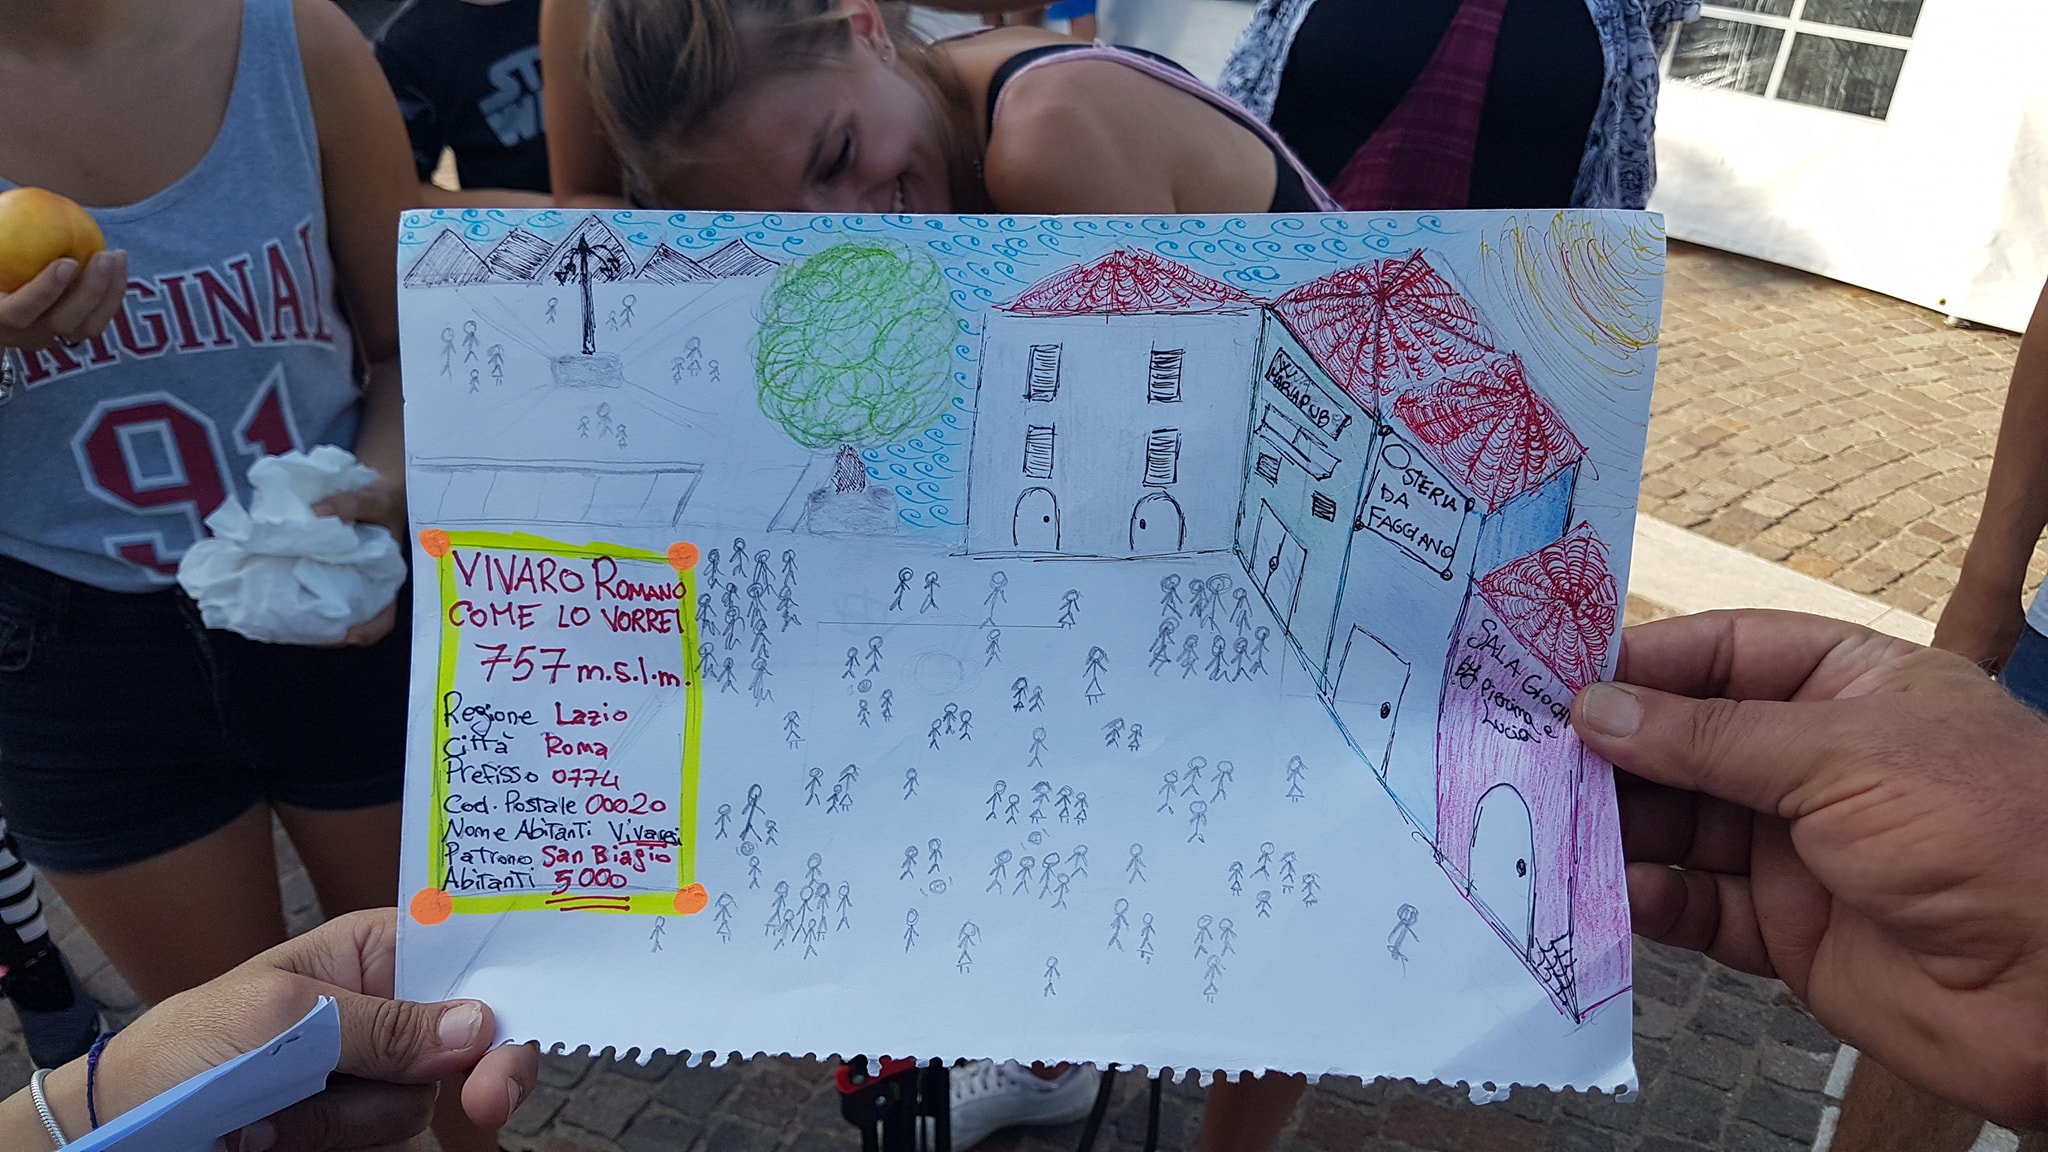 ORIGINAL
91
STAR
WARS
MARYAPUB
OSTERIA
DA
FAGGIANO
SALA GIOCHI
by Pierina e
Lucia
VIVARO ROMANO
COME LO VORREI
757 m.s.l.m.
Regione Lazio
Città Roma
Prefisso 0774
Cod. Postale 00020
Nome Abitanti Vivaresi
Patrono San Biagio
Abitanti 5000